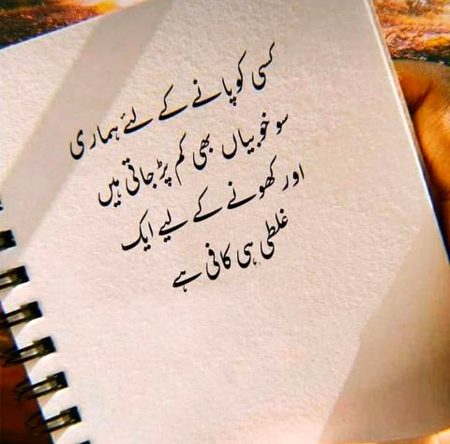 کسی کو پانے کے لئے ہماری
سو خوبیاں بھی کم پڑ جاتی ہیں
اور کھونے کے لیے ایک
غلطی ہی کافی ہے